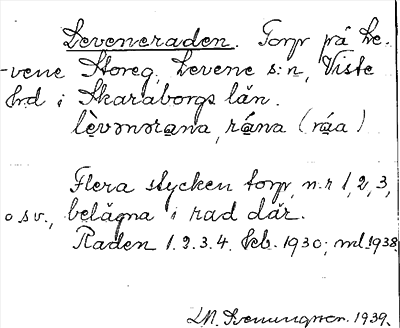 Leveneraden. Torp på Le-
vene Storeg., Levene s:n, Viste
hd i Skaraborgs län.
lèvənərana, rána (ráa)
Flera stycken torp, n.r 1, 2, 3,
o sv., belägna i rad där.
Raden 1. 2. 3. 4. Keb. 1930; ml. 1938.
1939.